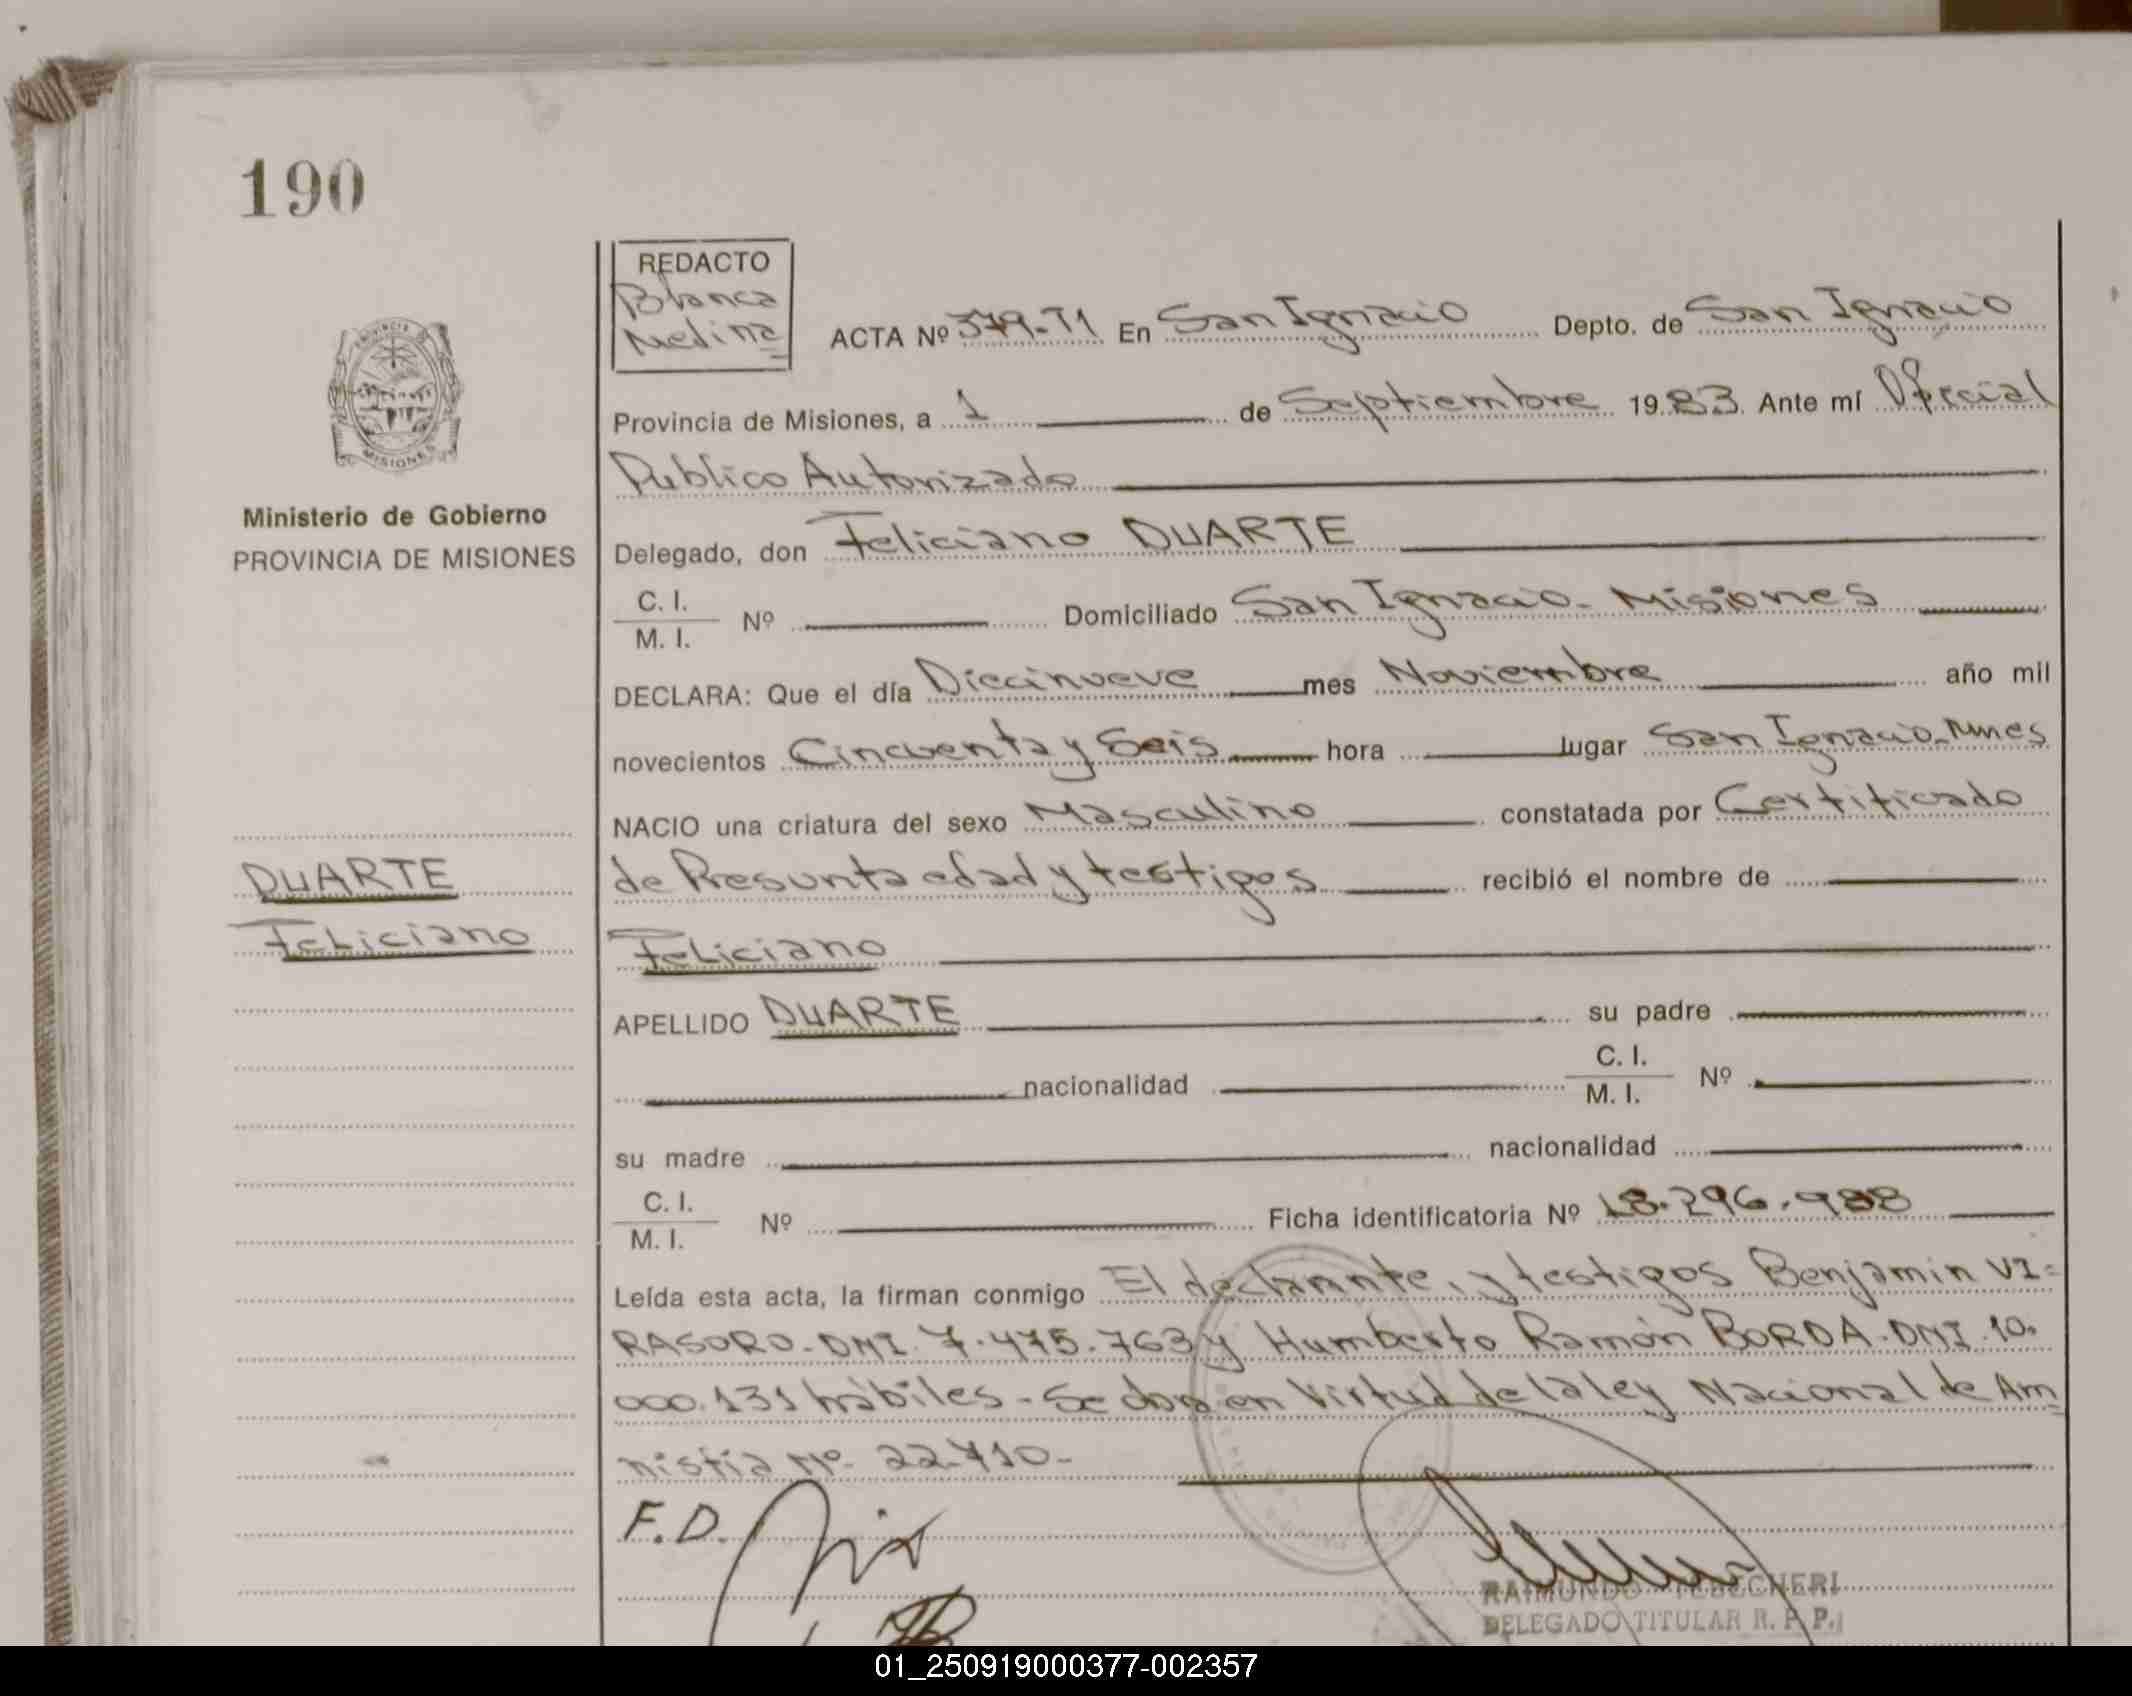 190
REDACTO
Blanca
Medina
ACTA Nº 379-T1 En San Ignacio Depto. de San Ignacio
Provincia de Misiones, a 1 de Septiembre 1983. Ante mí Oficial
Publico Autorizado
PROVINCIA
MISIONES
Ministerio de Gobierno
PROVINCIA DE MISIONES
Delegado, don Feliciano DUARTE
C. I.
M. I. Nº Domiciliado San Ignacio - Misiones
DECLARA: Que el día Diecinueve mes Noviembre año mil
novecientos Cincuenta y Seis hora lugar San Ignacio-Mnes
NACIO una criatura del sexo Masculino constatada por Certificado
de Presunta edad y testigos recibió el nombre de
DUARTE
Feliciano
Feliciano
APELLIDO DUARTE su padre
nacionalidad C. I.
M. I. Nº
su madre nacionalidad
C. I.
M. I. Nº Ficha identificatoria Nº 18.296.988
Leída esta acta, la firman conmigo El declarante, y testigos Benjamin VI=
RASORO-DNI. 7.475.763 y Humberto Ramón BORDA-DNI.10.
000.131 hábiles - Se en Virtud de la ley Nacional de Am
nistia Nº 22.710-
F.D.
RAIMUNDO
DELEGADO TITULAR R. P. P.
01_250919000377-002357